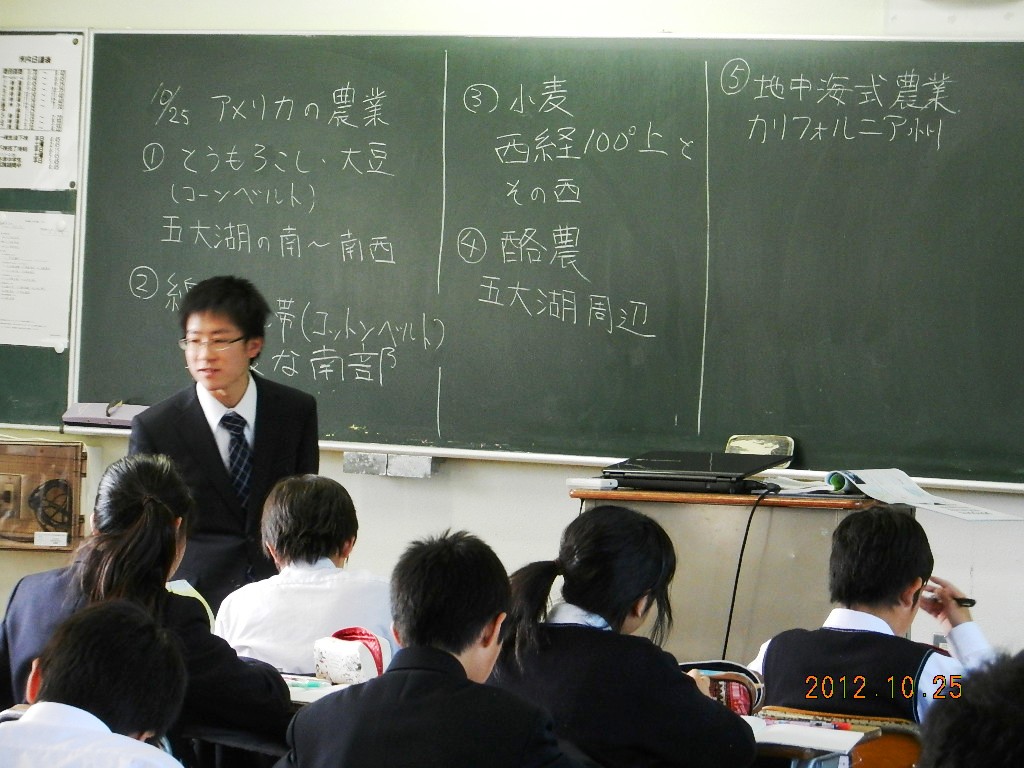 10/25 アメリカの農業
① とうもろこし・大豆
(コーンベルト)
五大湖の南〜南西
② 綿
帯(コットンベルト)
な南部
③ 小麦
西経100°上と
その西
④ 酪農
五大湖周辺
⑤ 地中海式農業
カリフォルニア州
2012.10.25